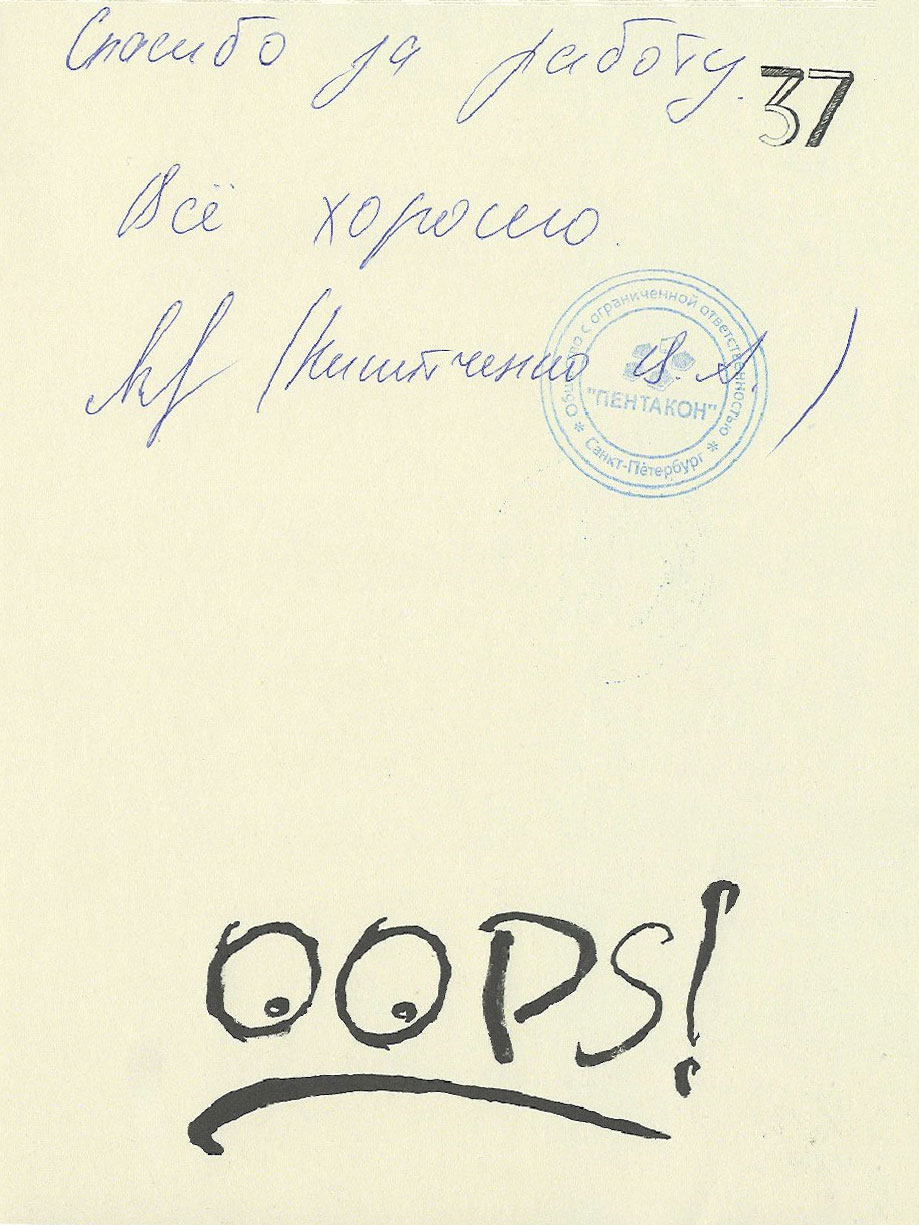 Спасибо за работу.
37
Всё хорошо.
Общество с ограниченной ответственностью
"ПЕНТАКОН"
* Санкт-Петербург *
OOPS!